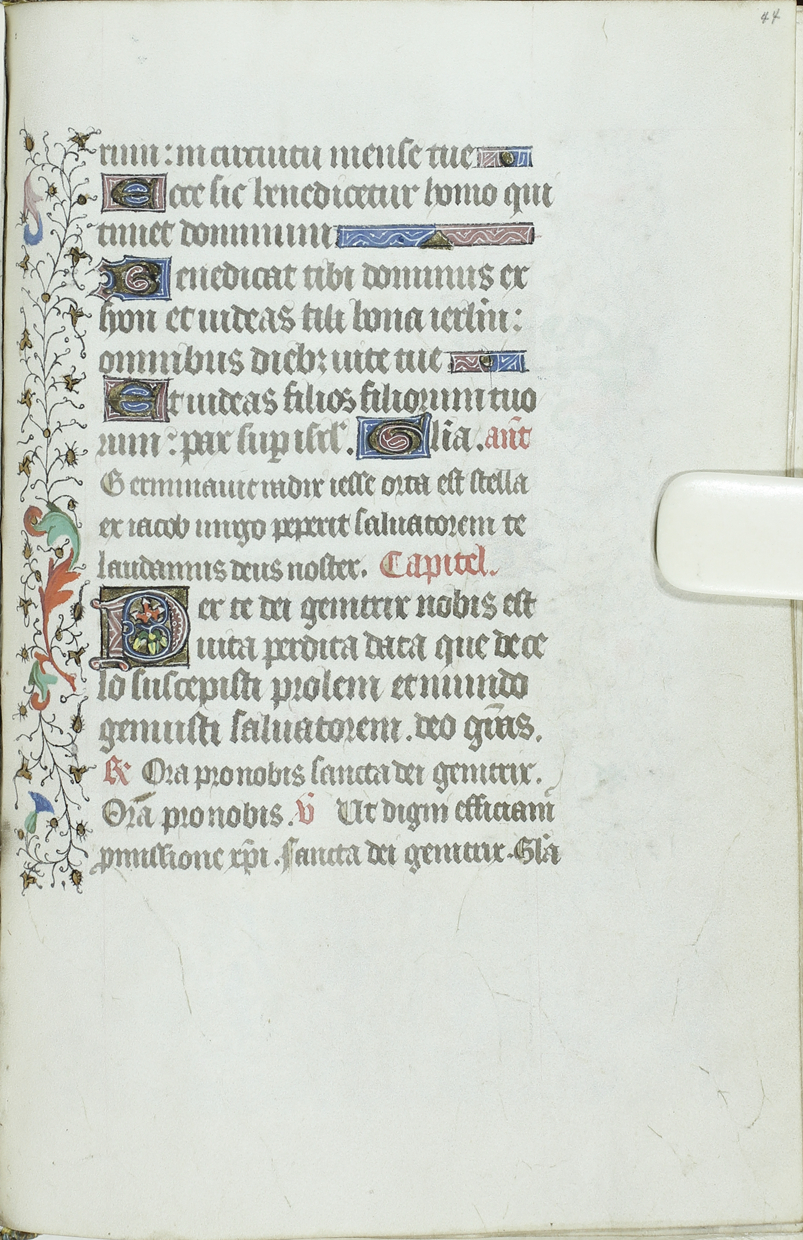 44
rum : in circuitu mense tue
Ecce sic benedicetur homo qui
timet dominum
Benedicat tibi dominus ex
syon et uideas bona ierl̄m :
omnibus diebꝫ uite tue
Et uideas filios filiorum tuo
rum : pax sup isrl̄ . Gl̄ia . ant̄
Germinauit radix iesse orta est stella
ex iacob uirgo peperit saluatorem te
laudamus deus noster . Capitel .
Per te dei genitrix nobis est
uita perdita data que de ce
lo suscepisti prolem et mundo
genuisti saluatorem . deo gr̄as .
℟ Ora pro nobis sancta dei genitrix .
Ora pro nobis . v̄ Ut digni efficiam̄
ꝓmissione xp̄i . sancta dei genitrix . Gl̄a